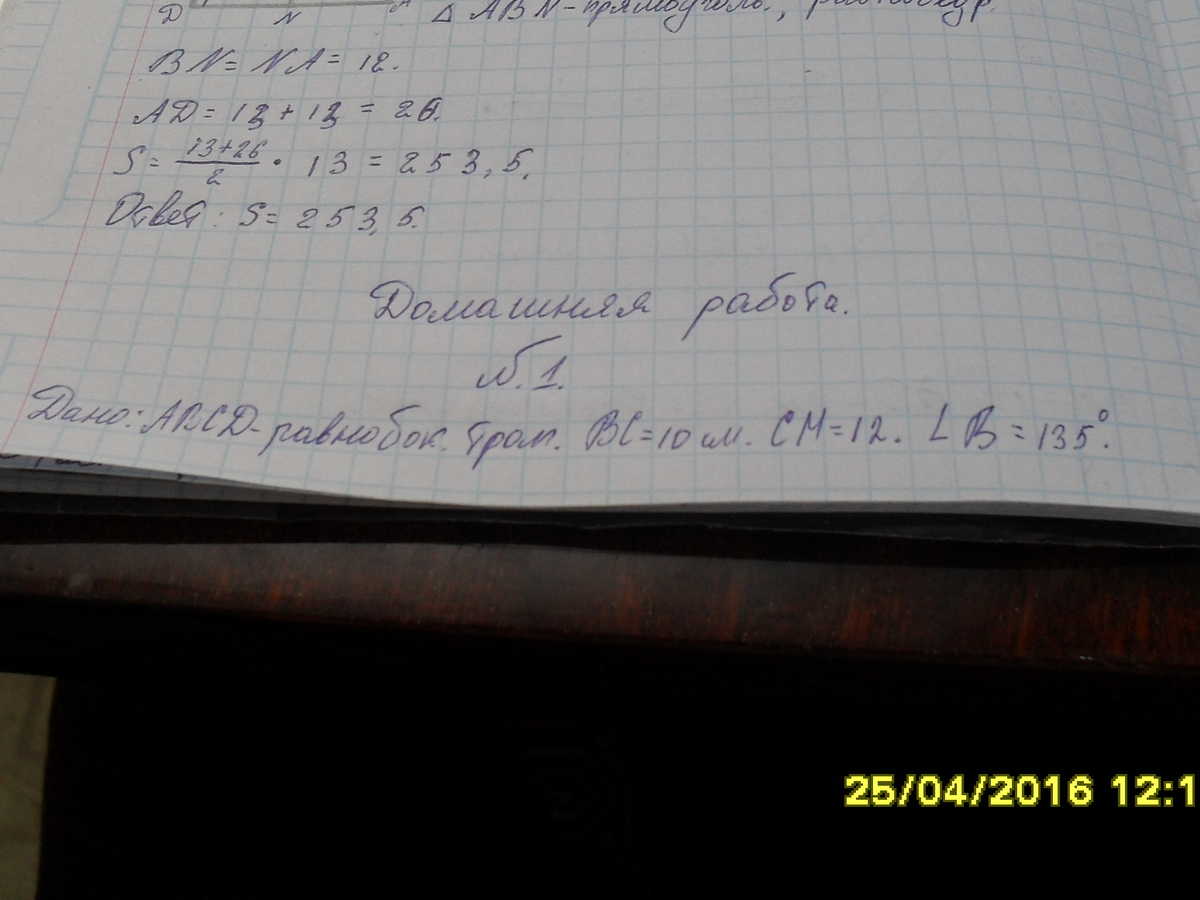 D N A Δ ABN-прямоугол.,
BN = NA = 12.
AD = 13 + 13 = 26.
S = 13+26/2 · 13 = 253,5.
Ответ: S = 253,5.
Домашняя работа.
N.1.
Дано: ABCD-равнобок. трап. BC=10 см. CH=12. ∠B=135°.
25/04/2016 12:1